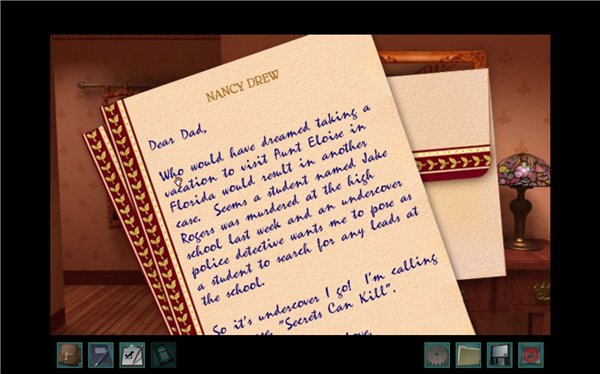 NANCY DREW
Dear Dad,
Who would have dreamed taking a
vacation to visit Aunt Eloise in
Florida would result in another
case. Seems a student named Jake
Rogers was murdered at the high
school last week and an undercover
police detective wants me to pose as
a student to search for any leads at
the school.
So it's undercover I go! I'm calling
"Secrets Can Kill".